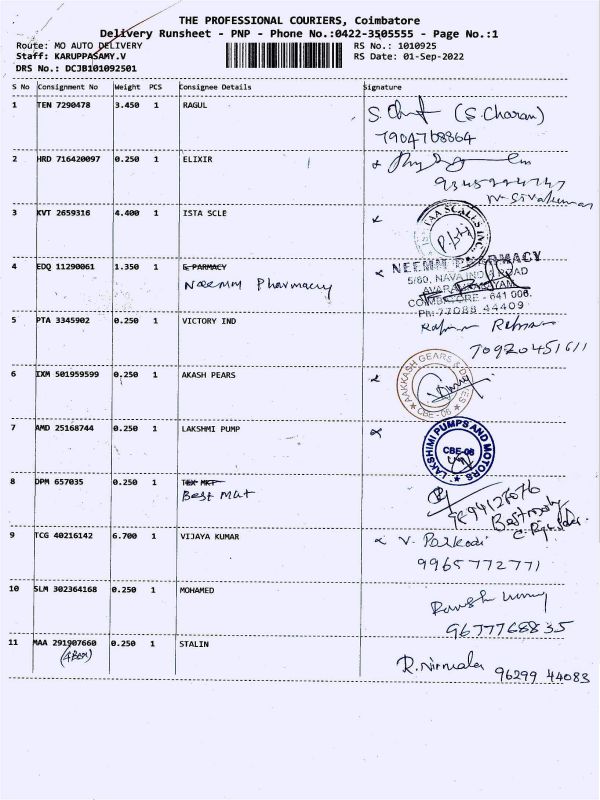 THE PROFESSIONAL COURIERS, Coimbatore
Delivery Runsheet - PNP - Phone No.:0422-3505555 - Page No.:1
Route: MO AUTO DELIVERY RS No.: 1010925
Staff: KARUPPASAMY.V RS Date: 01-Sep-2022
DRS No.: DCJB101092501
S No Consignment No Weight PCS Consignee Details Signature
1 TEN 7290478 3.450 1 RAGUL
(S Charan)
7904768864
2 HRD 716420097 0.250 1 ELIXIR
3 KVT 2659316 4.400 1 ISTA SCLE
SCALES INC
4 EDQ 11290061 1.350 1 E PARMACY
Neemm Pharmacy
NEEMM PHARMACY
5/60, NAVA INDIA ROAD
COIMBATORE - 641 006.
Ph: 77088 44409
5 PTA 3345902 0.250 1 VICTORY IND
70920451611
6 IXM 501959599 0.250 1 AKASH PEARS
AAKKASH GEARS &
CBE - 06
7 AMD 25168744 0.250 1 LAKSHMI PUMP
LAKSHIMI PUMPS AND MOTORS
CBE-06
8 DPM 657035 0.250 1 TEX MKT
Best Mkt
9 TCG 40216142 6.700 1 VIJAYA KUMAR
V.
9965772771
10 SLM 302364168 0.250 1 MOHAMED
9677768835
11 MAA 291907660 0.250 1 STALIN
(4Box)
R. Nirmala 96299 44083